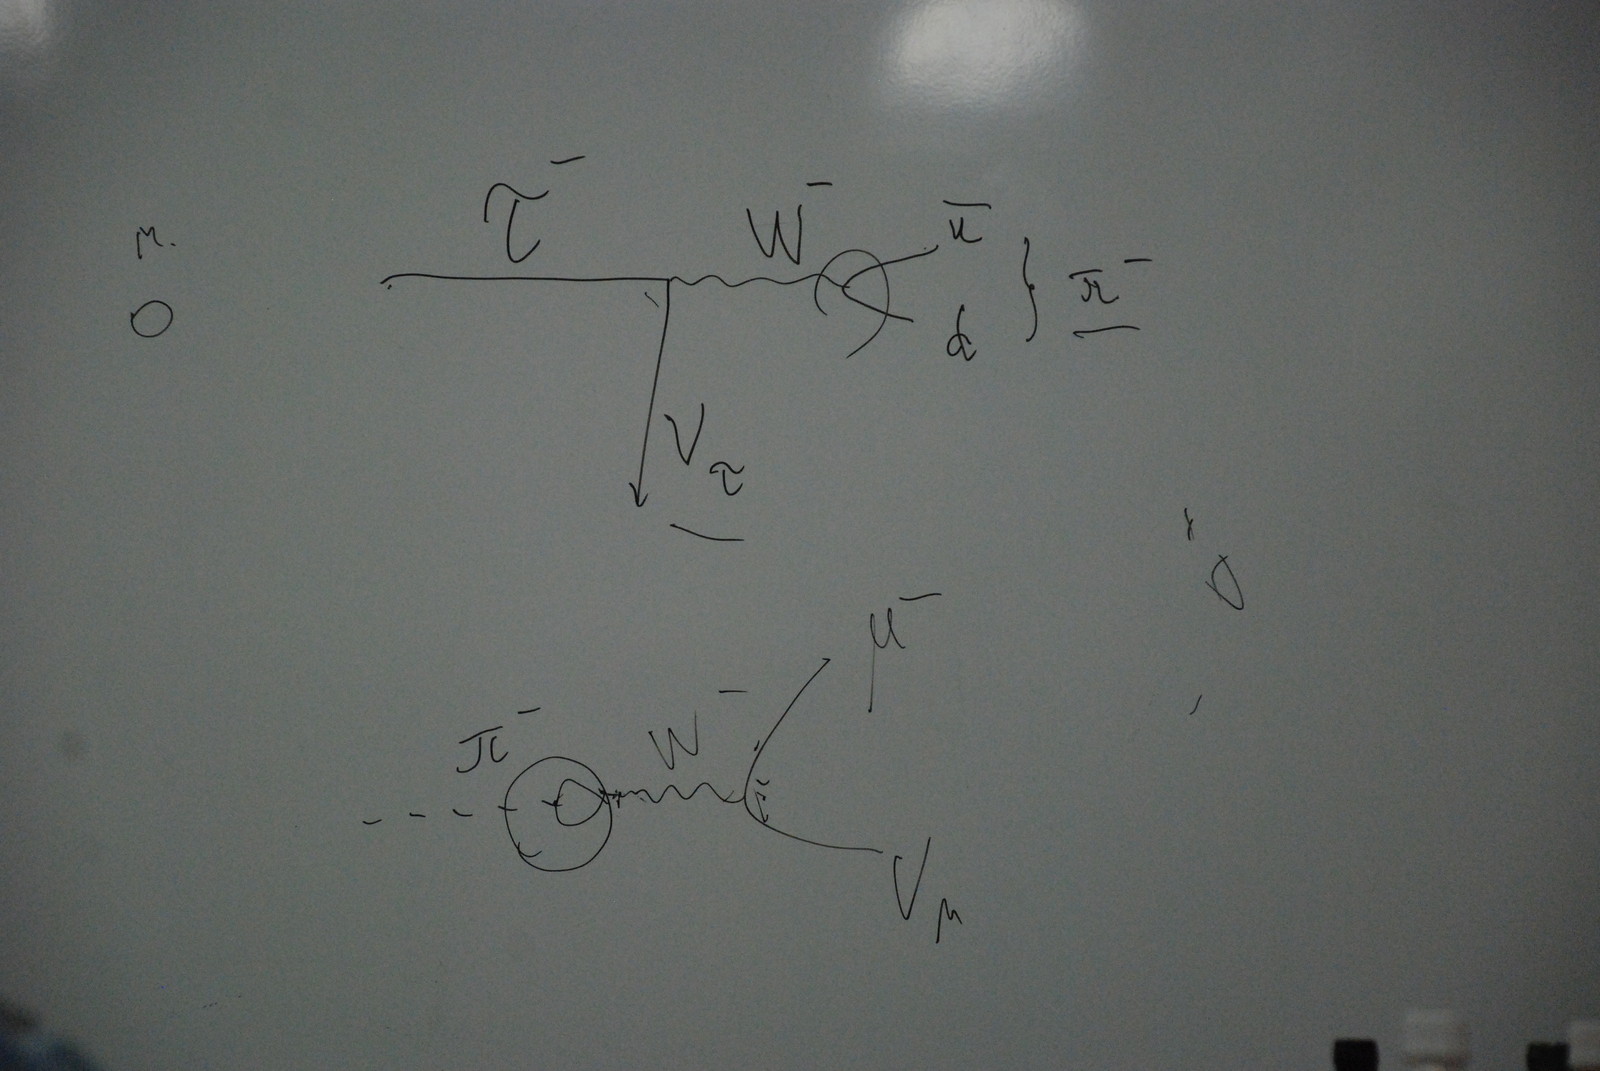 τ⁻ W⁻ ū
d } π⁻
ν_τ
μ⁻
π⁻ W⁻
ν_μ